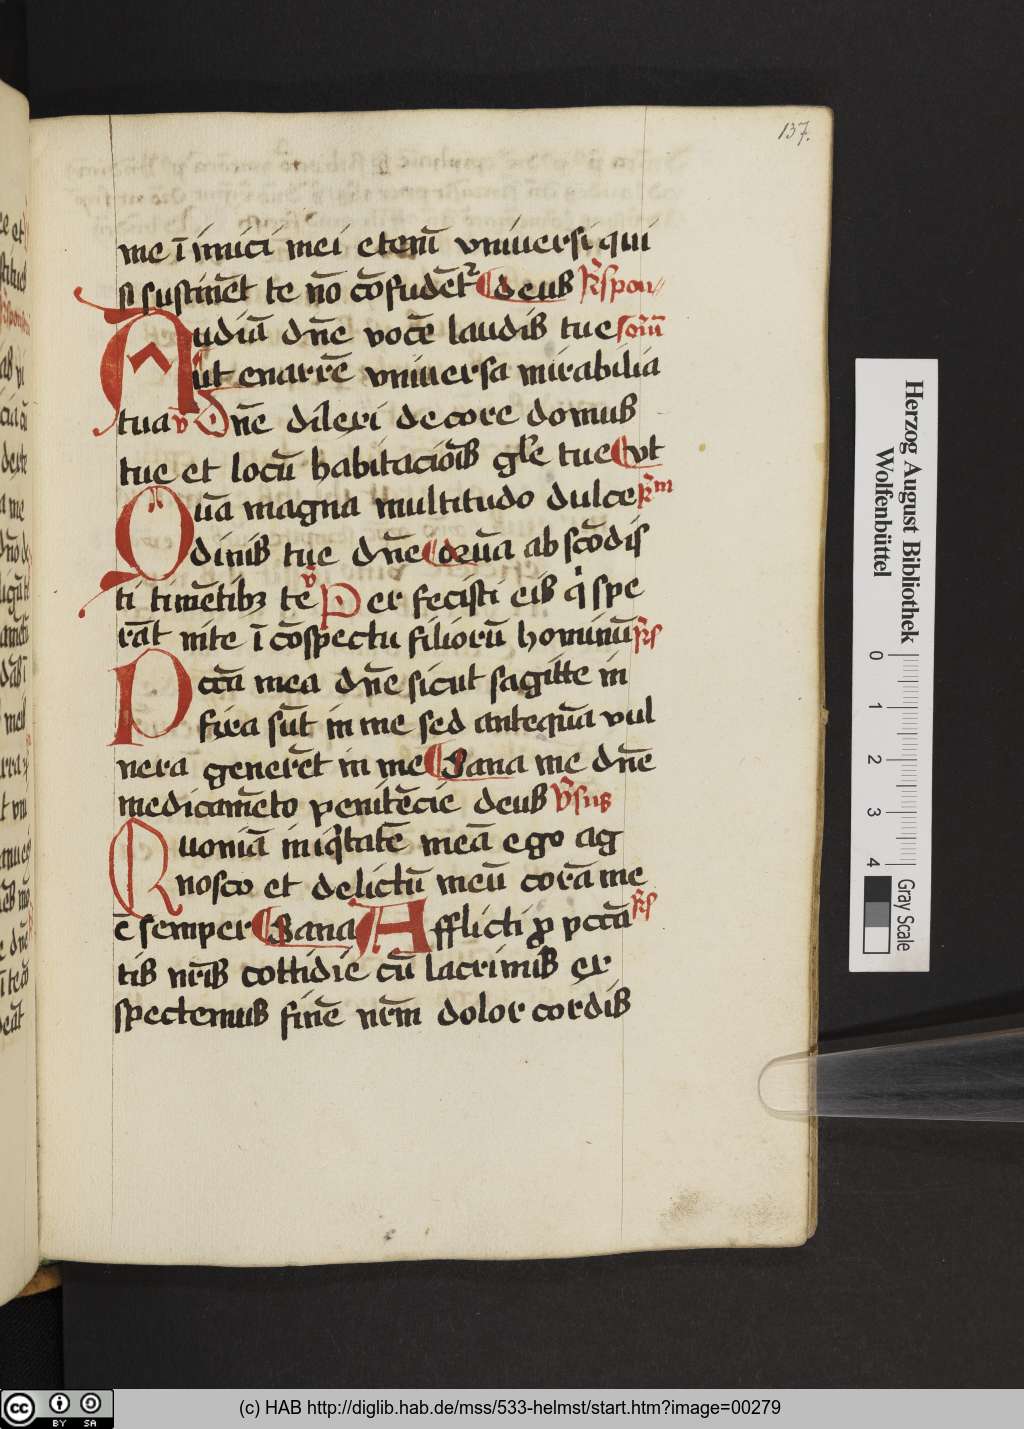 137.
me ī imici mei eteni᷑ vniuersi qui
si sustinēt te nō cōfudēt᷑ deus R᷑spon
Audiā dn̄e vocē laudis tue soriū
Ut enarrē vniuersa mirabilia
tua v̄ Dn̄e dilexi decore domus
tue et locū habitaciōis gl̄e tue Vt
Quā magna multitudo dulce R᷑m
dinis tue dn̄e Quā abscōdis
ti timētibꝫ te v̄ Per fecisti eis q̇ spe
rāt inte ī cōspectu filiorū hominū R᷑s
Pcc̄a mea dn̄e sicut sagitte in
fixa sūt in me sed antequā vul
nera generēt in me Sana me dn̄e
medicamēto penitēcie deus V᷑sus
Quoniā iniq̇tatē meā ego ag
nosco et delictū meū corā me
ē semper Sana Afflicti ꝓ pcc̄a R᷑s
tis nr̄is cottidie cū lacrimis ex
spectemus finē nr̄m dolor cordis
Herzog August Bibliothek
Wolfenbüttel
0 1 2 3 4
Gray Scale
cc BY SA
(c) HAB http://diglib.hab.de/mss/533-helmst/start.htm?image=00279